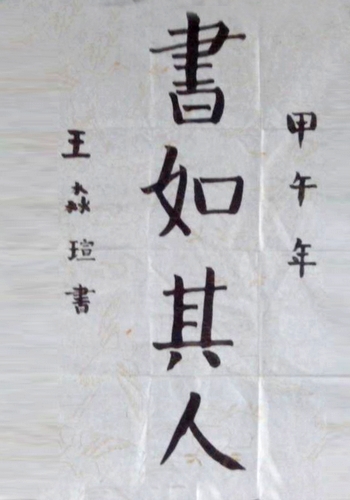 甲午年
書如其人
王淼瑄書